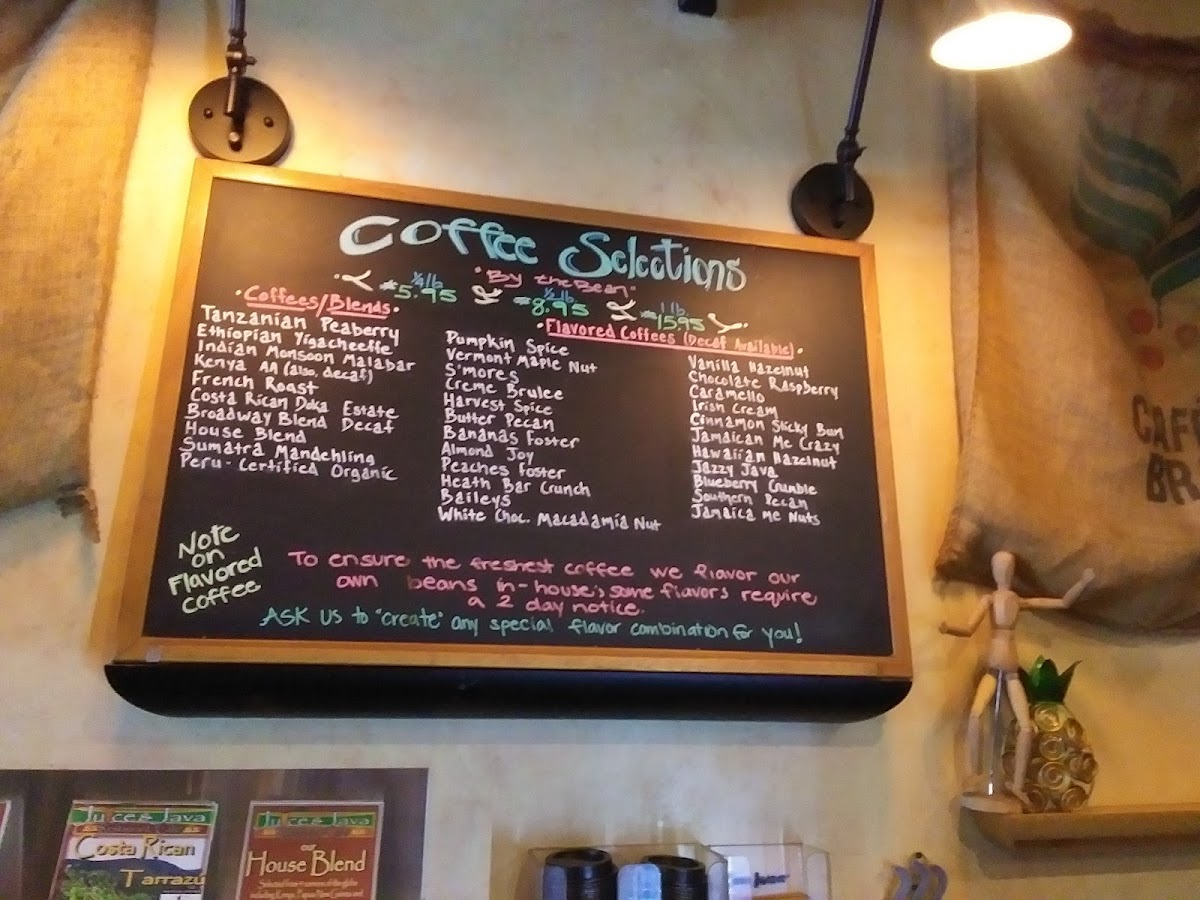 Coffee Selections
"By the Bean"
1/4 lb 1/2 lb 1 lb
$5.95 $8.95 $15.95
• Coffees/Blends •
Tanzanian Peaberry
Ethiopian Yigacheffe
Indian Monsoon Malabar
Kenya AA (also, decaf)
French Roast
Costa Rican Doka Estate
Broadway Blend Decaf
House Blend
Sumatra Mandehling
Peru - Certified Organic
• Flavored Coffees (Decaf Available) •
Pumpkin Spice
Vermont Maple Nut
S'mores
Creme Brulee
Harvest Spice
Butter Pecan
Bananas Foster
Almond Joy
Peaches Foster
Heath Bar Crunch
Baileys
White Choc. Macadamia Nut
Vanilla Hazelnut
Chocolate Raspberry
Caramello
Irish Cream
Cinnamon Sticky Bun
Jamaican Me Crazy
Hawaiian Hazelnut
Jazzy Java
Blueberry Crumble
Southern Pecan
Jamaica Me Nuts
Note
on
Flavored
coffee
To ensure the freshest coffee we flavor our
own beans in-house; some flavors require
a 2 day notice.
ASK US to "create" any special flavor combination for you!
CAF
BR
Juice & Java
Costa Rican
Tarrazu
Juice & Java
our
House Blend